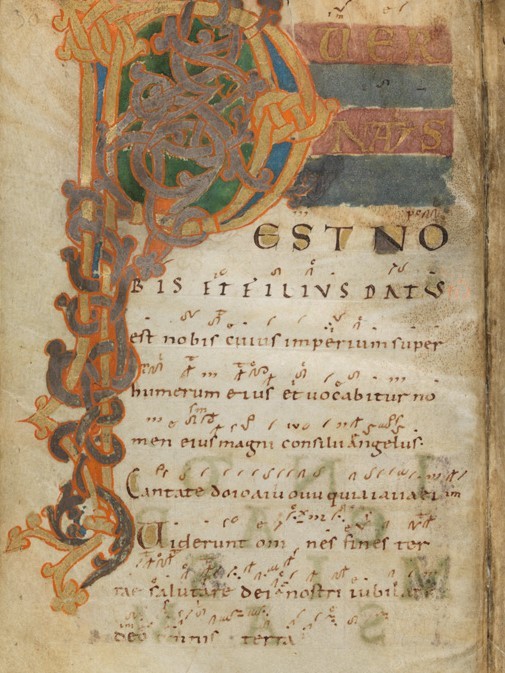 PUER
NATUS
EST NO
BIS ET FILIUS DATUS
est nobis cuius imperium super
humerum eius et vocabitur no
men eius magni consilii angelus.
Cantate domino canticum novum quia mirabilia
Viderunt om nes fines ter
rae salutare dei nostri iubilate
deo omnis terra